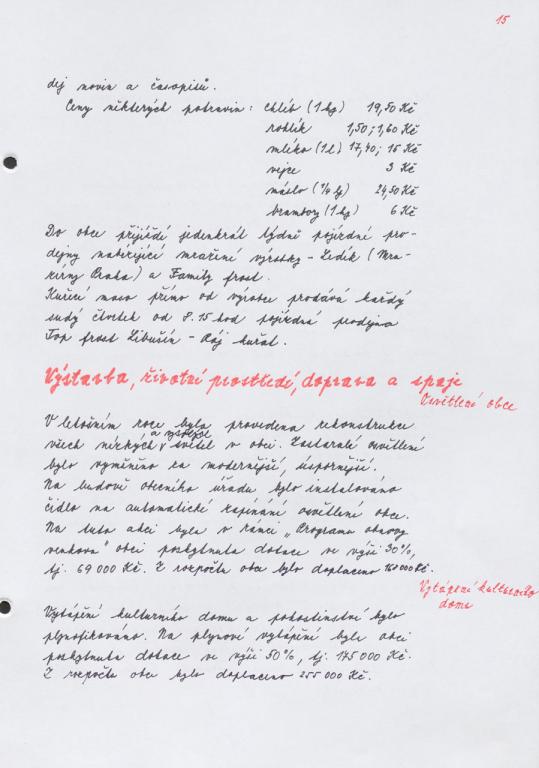 15
dej novin a časopisů.
Ceny některých potravin: chléb (1 kg) 19,50 Kč
rohlík 1,50; 1,60 Kč
mléko (1 l) 17,40; 15 Kč
vejce 3 Kč
máslo (1/4 kg) 24,50 Kč
brambory (1 kg) 6 Kč
Do obce přijíždí jedenkrát týdně pojízdné pro-
dejny nabízející mražené výrobky - Ledík (Mra-
zírny Praha) a Family frost.
Kuřecí maso přímo od výrobce prodává každý
sudý čtvrtek od 8.15 hod pojízdná prodejna
Top frost Libušín - Ráj kuřat.
Výstavba, životní prostředí, doprava a spoje
Osvětlení obce
V letošním roce byla provedena rekonstrukce
všech nízkých a vysokých světel v obci. Zastaralé osvětlení
bylo vyměněno za modernější, úspornější.
Na budově obecního úřadu bylo instalováno
čidlo na automatické zapínání osvětlení obce.
Na tuto akci byla v rámci „Programu obnovy
venkova" obci poskytnuta dotace ve výši 30%,
tj. 69 000 Kč. Z rozpočtu obce bylo doplaceno 160 000 Kč.
Vytápění kulturního
domu
Vytápění kulturního domu a pohostinství bylo
plynofikováno. Na plynové vytápění byla obci
poskytnuta dotace ve výši 50%, tj. 175 000 Kč.
Z rozpočtu obce bylo doplaceno 255 000 Kč.